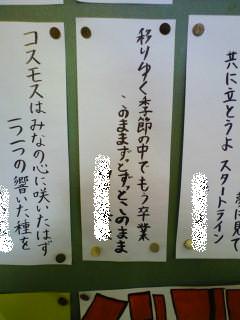 共に立とうよ スタートライン
移りゆく季節の中でもう卒業
このままずっとずっとこのまま
コスモスはみなの心に咲いたはず
一つ一つの響いた種を